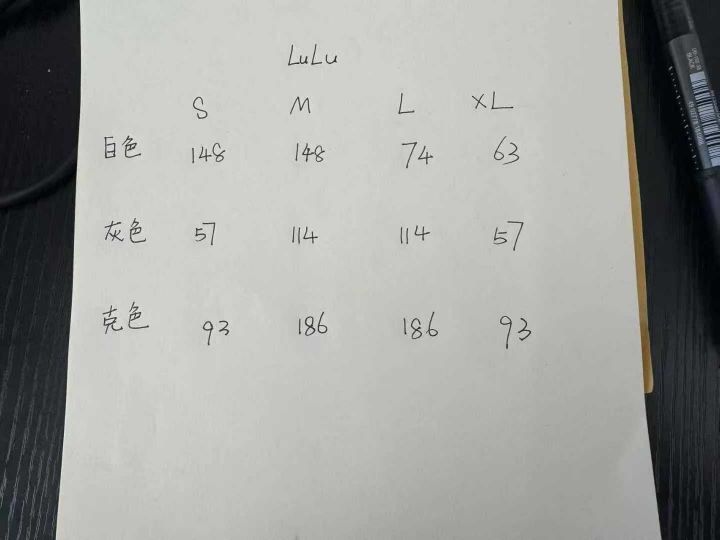 LuLu
S M L XL
白色 148 148 74 63
灰色 57 114 114 57
克色 93 186 186 93